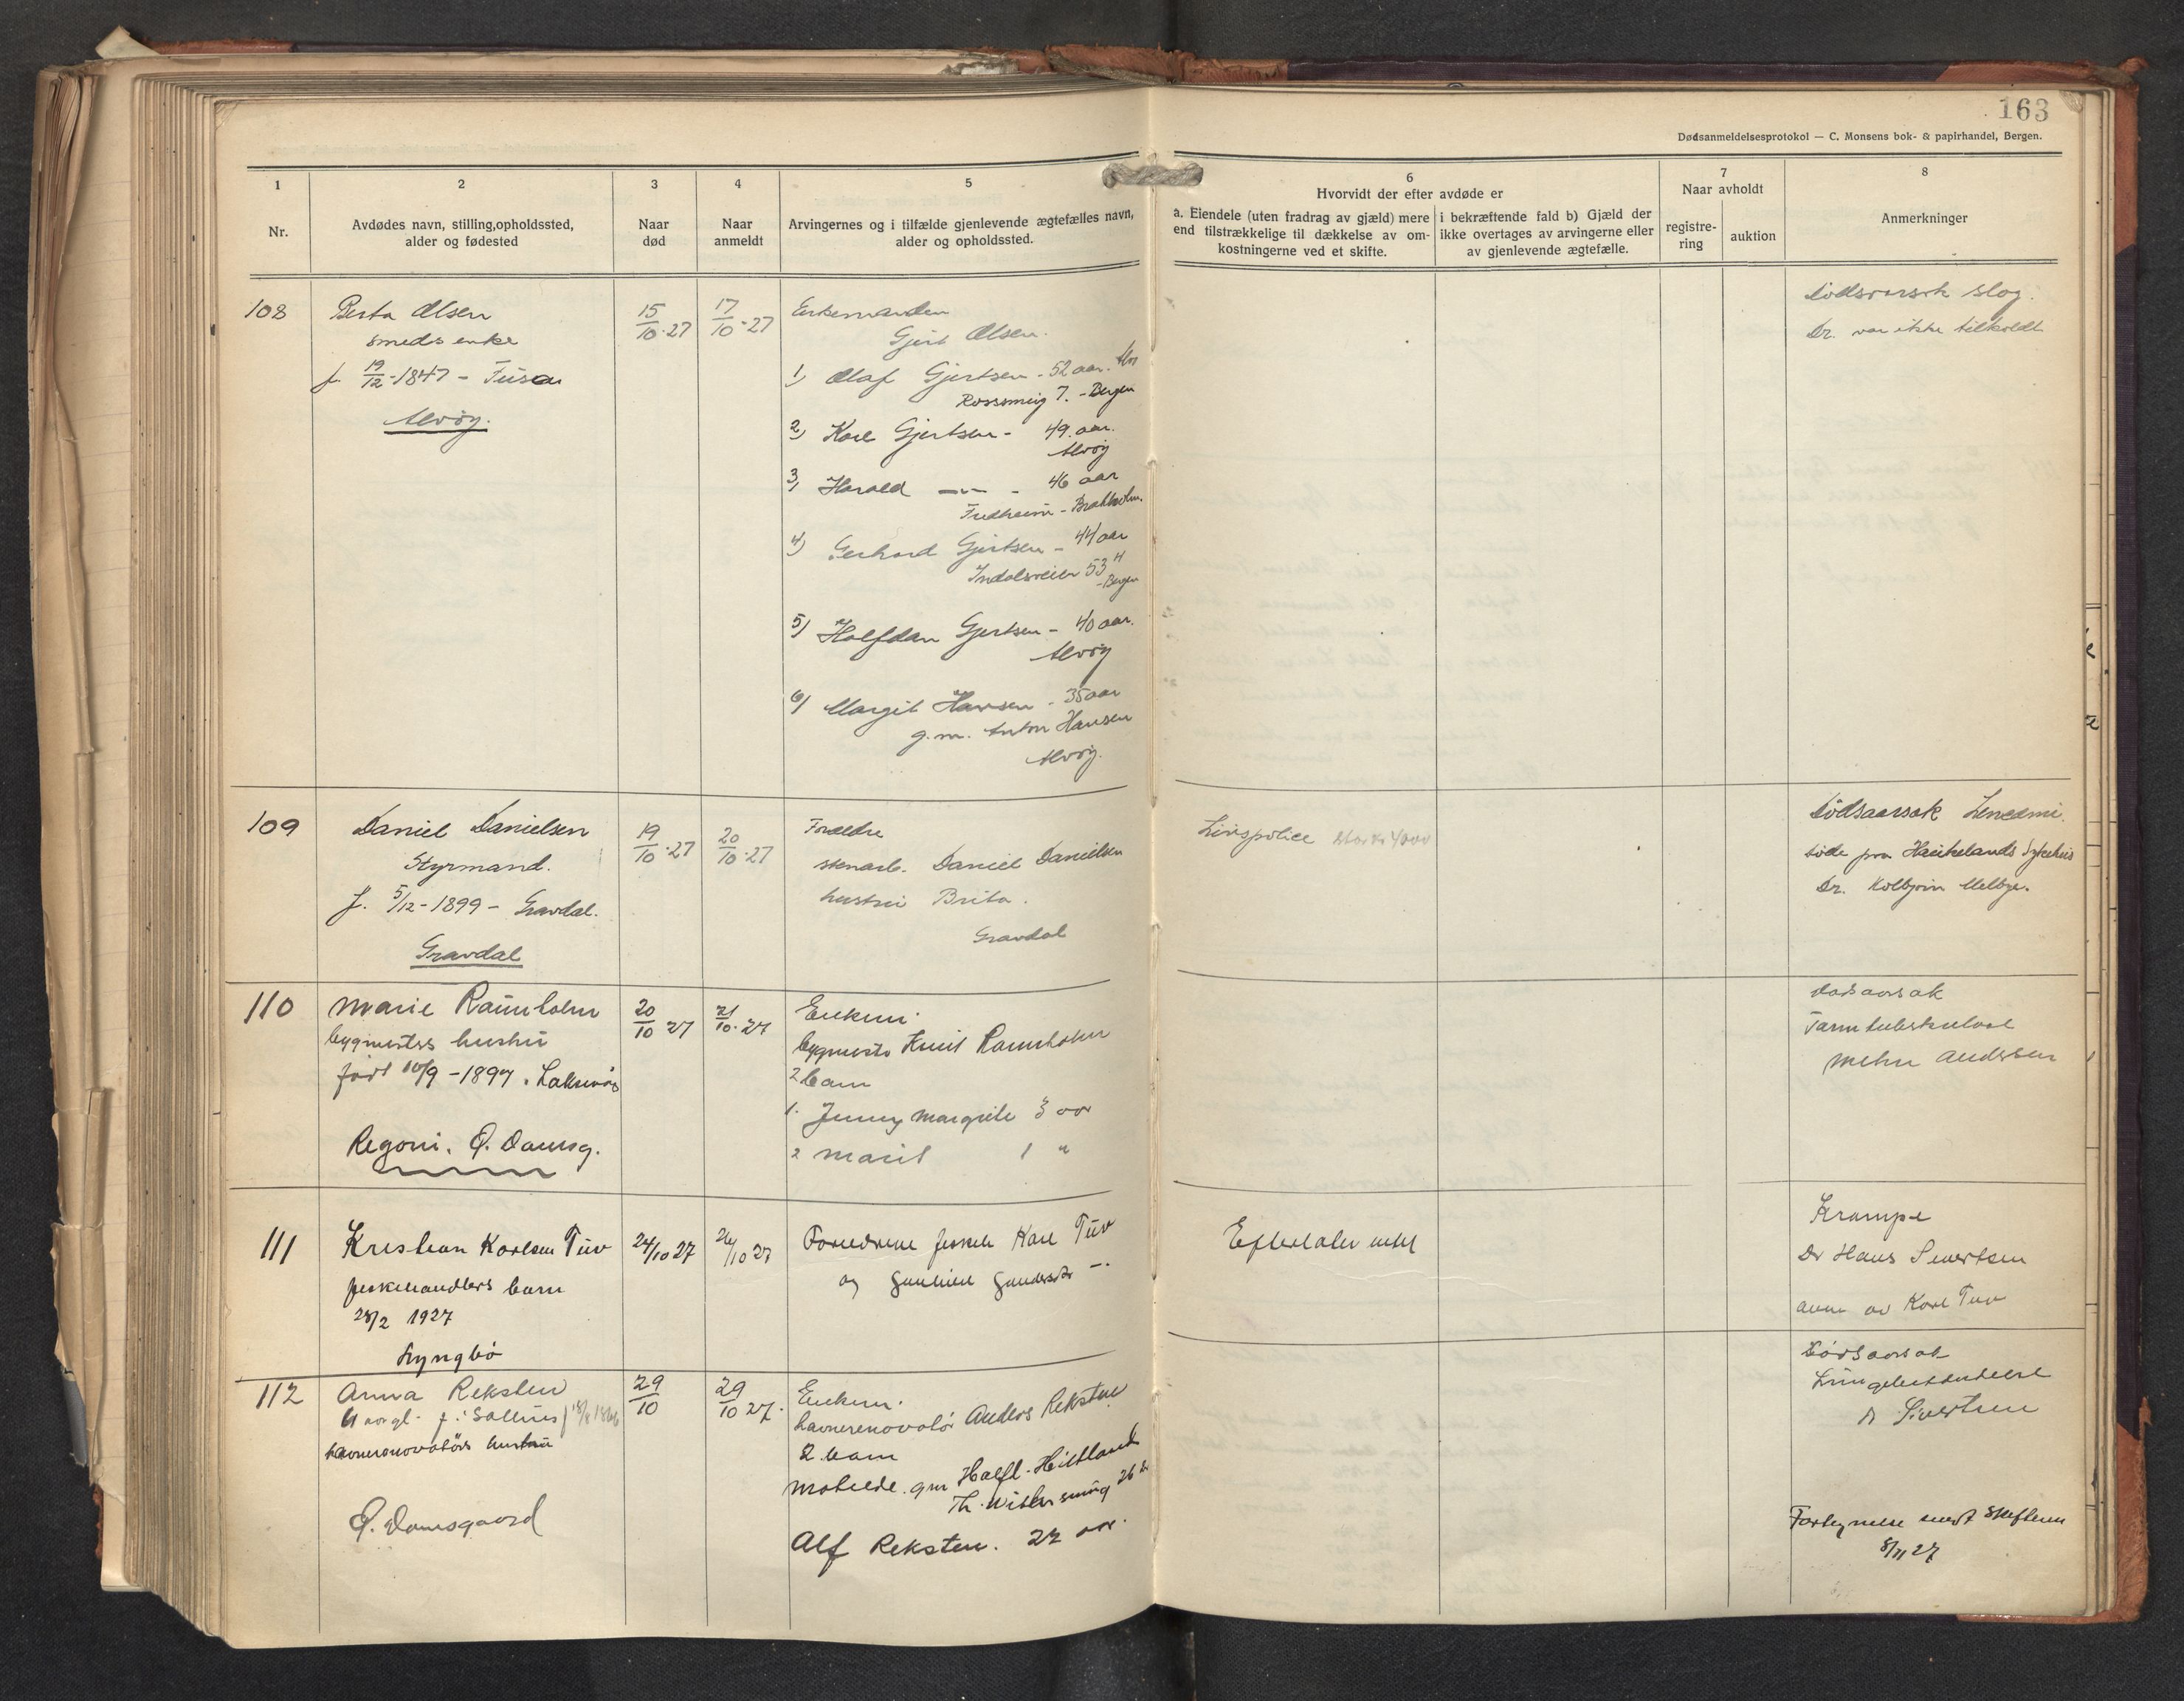 163
Dødsanmeldelsesprotokol — C. Monsens bok- & papirhandel, Bergen.
1
Nr.
2
Avdødes navn, stilling, opholdssted,
alder og fødested
3
Naar
død
4
Naar
anmeldt
5
Arvingernes og i tilfælde gjenlevende ægtefælles navn,
alder og opholdssted.
6
Hvorvidt der efter avdøde er
a. Eiendele (uten fradrag av gjæld) mere
end tilstrækkelige til dækkelse av om-
kostningerne ved et skifte.
i bekræftende fald b) Gjæld der
ikke overtages av arvingerne eller
av gjenlevende ægtefælle.
7
Naar avholdt
registre-
ring
auktion
8
Anmerkninger
108
Berta Olsen
smeds enke
f. 19/12-1847 - Fusa
Alvøy.
15/10-27
17/10-27
Enkemanden
Gjert Olsen.
1) Olaf Gjertsen - 52 aar.
7. - Bergen
2) Karl Gjertsen - 49 aar.
Alvøy
3) Harald —"— - 46 aar
4) Gerhard Gjertsen - 44 aar
53
- Bergen
5) Halfdan Gjertsen - 40 aar.
Alvøy
6) Margit Hansen - 35 aar
g.m. Anton Hansen
Alvøy.
Dødsaarsak slag.
Dr. var ikke tilkaldt
109
Daniel Danielsen
Styrmand.
f. 5/12-1899 - Gravdal.
Gravdal
19/10-27
20/10-27
Forældre
stenarb. Daniel Danielsen
hustru Brita.
Gravdal
Livspolice
Dødsaarsak
døde paa Haukelands Sykehus
Dr. Kolbjørn Melbye.
110
Marie Ramholm
bygmesters hustru
født 10/9-1897.
Regoni. Ø. Damsg.
20/10 27
21/10-27
Enkem.
bygmester Knut Ramholm
2 barn
1. Jenny Margrete 3 aar
2 Marit 1 "
Dødsaarsak
Tarmtuberkulose
Andersen
111
Kristian Karlsen Tuv
fiskehandlers barn
28/2 1927
Lyngbø
24/10 27
26/10 27
Forældrene fiskeh Karl Tuv
og
Efterlater intet
Krampe
Dr Hans Sivertsen
anm av Karl Tuv
112
Anna Reksten
havnerenovatørs hustru
Ø. Damsgaard
29/10
29/10 27.
Enkem.
havnerenovatør Anders Reksten
2 barn
gm
Alf Reksten. 22 aar.
Dødsaarsak
Lungebetændelse
Dr Sivertsen
sendt Skifteren
8/11 27